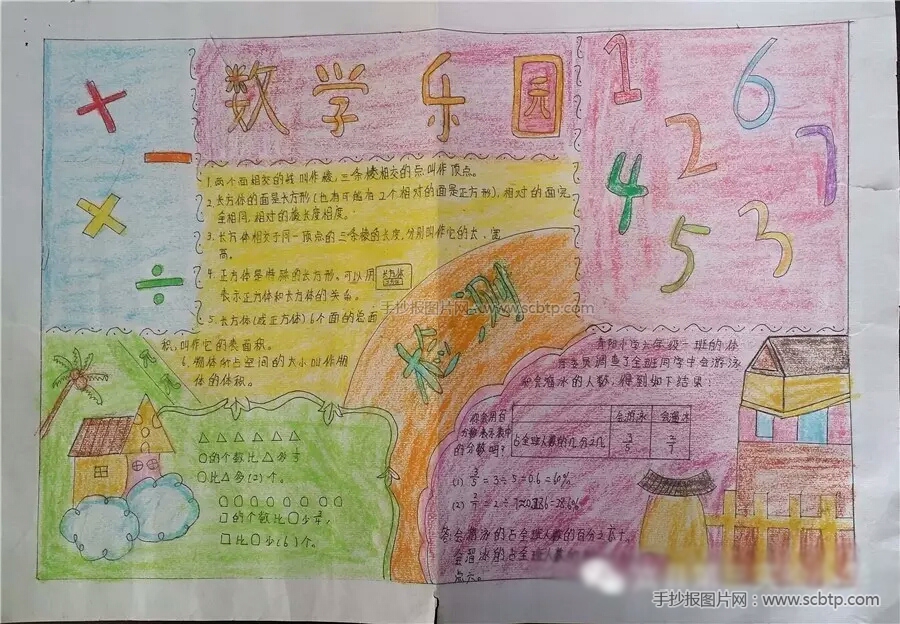 数学乐园
+
−
×
÷
1
6
2
7
4
5
3
1.两个面相交的线叫作棱,三条棱相交的点叫作顶点。
2.长方体的面是长方形(也有可能有2个相对的面是正方形),相对的面完
全相同,相对的棱长度相度。
3.长方体相交于同一顶点的三条棱的长度,分别叫作它的长、宽
高。
4.正方体是特殊的长方形、可以用
表示正方体和长方体的关系。
5.长方体(或正方体)6个面的总面
积,叫作它的表面积。
6.物体所占空间的大小叫作物
体的体积。
检测
△△△△△△
○的个数比△多1/3
○比△多(2)个。
○○○○○○○○
□的个数比○少3/4,
□比○少(6)个。
六年级一班的体
育委员调查了全班同学中会游泳
和会溜冰的人数,得到如下结果:
你会用百
分数表示表中
的分数吗?
会游泳
会溜冰
占全班人数的几分之几
3/5
2/7
(1) 3/5=3÷5=0.6=60%
(2) 2/7=2÷7≈0.286=28.6%
答:会游泳的占全班人数的百分之六十,
手抄报图片网 www.scbtp.com
手抄报图片网:www.scbtp.com